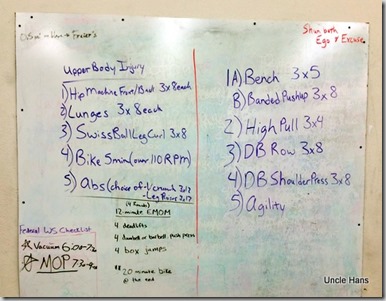 Shun both
Ego & Excuse
Upper Body Injury
1) Hip Machine Front/Back 3x8 each
2) Lunges 3x8 each
3) Swiss Ball Leg Curl 3x8
4) Bike 5min (over 110 RPM)
5) Abs (choice of - V crunch 3x12
- Leg Raise 3x17
1A) Bench 3x5
B) Banded Pushup 3x8
2) High Pull 3x4
3) DB Row 3x8
4) DB Shoulder Press 3x8
5) Agility
Federal WS Checklist
Vacuum
MOP
(4 Rounds)
12-minute EMOM
4 deadlifts
4 dumbell or barbell push press
4 box jumps
** 20 minute bike
@ the end
Uncle Hans